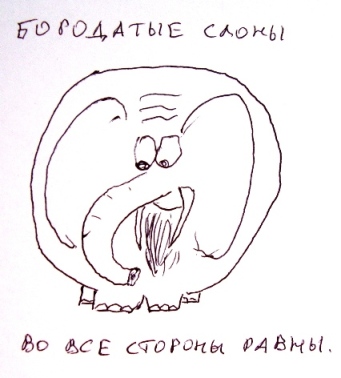 БОРОДАТЫЕ СЛОНЫ
ВО ВСЕ СТОРОНЫ РАВНЫ.